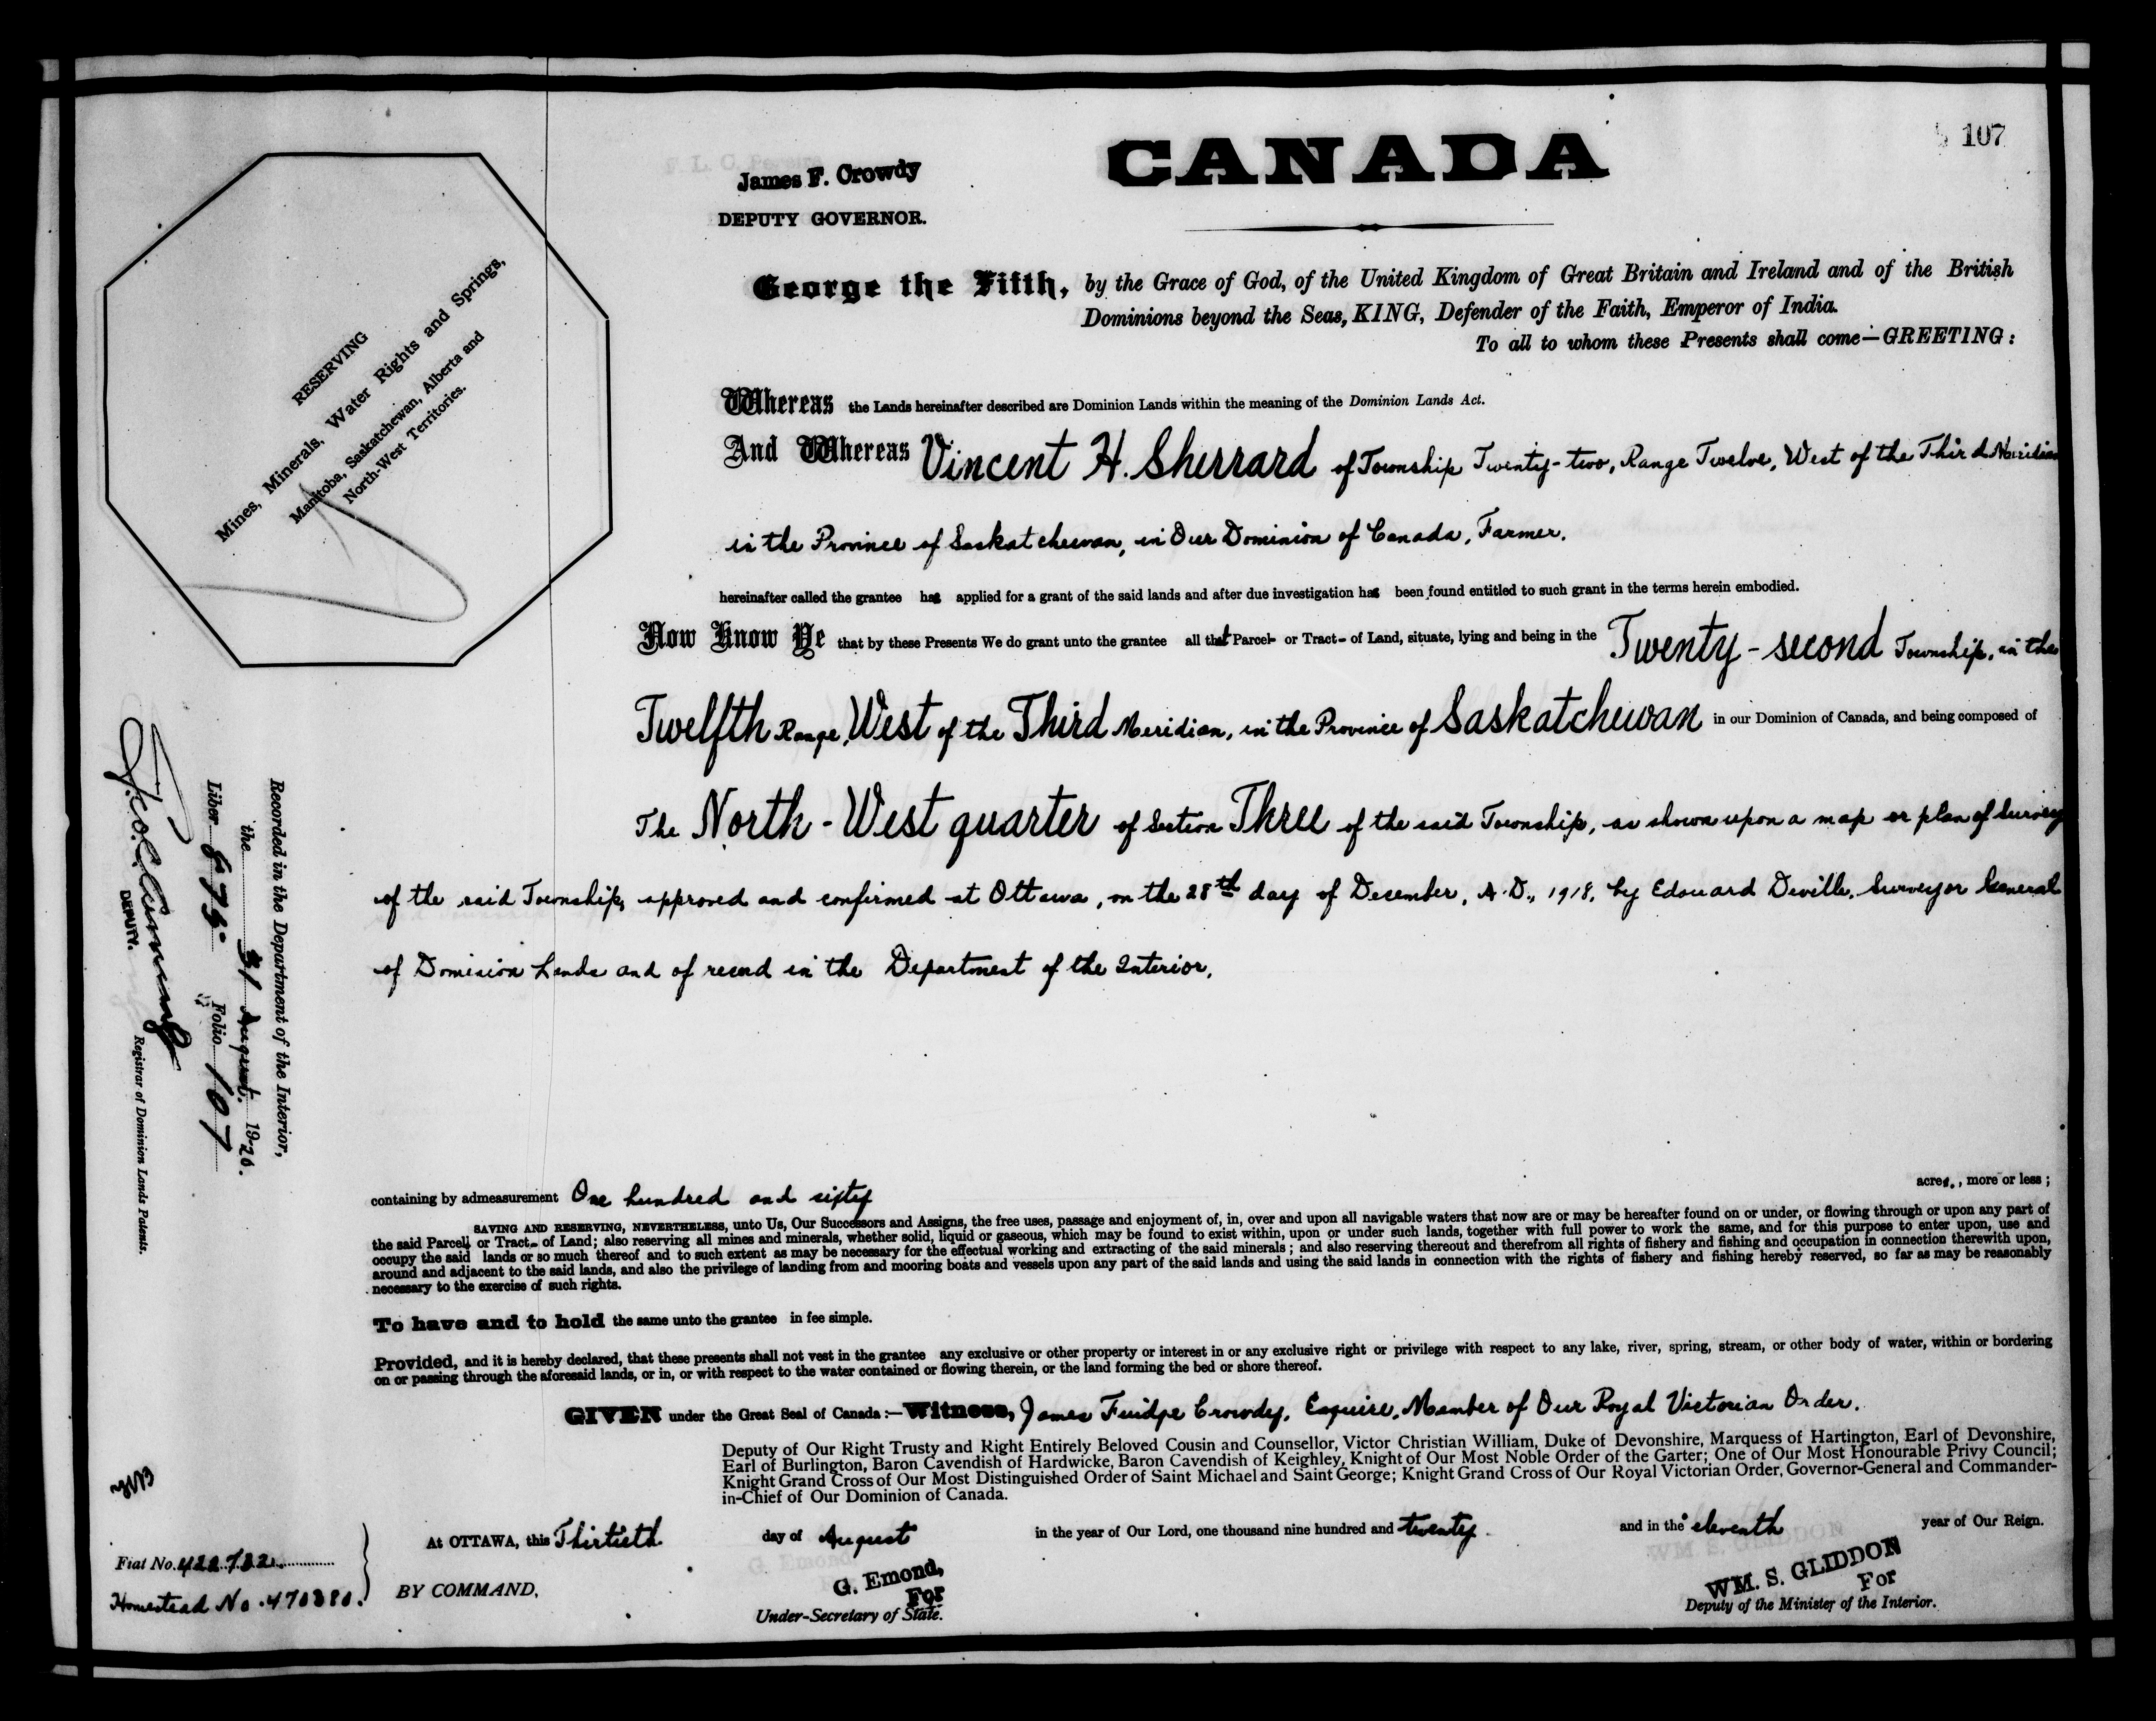 107
CANADA
James F. Crowdy
DEPUTY GOVERNOR.
George the Fifth, by the Grace of God, of the United Kingdom of Great Britain and Ireland and of the British
Dominions beyond the Seas, KING, Defender of the Faith, Emperor of India.
To all to whom these Presents shall come—GREETING:
RESERVING
Mines, Minerals, Water Rights and Springs,
Manitoba, Saskatchewan, Alberta and
North-West Territories.
Whereas the Lands hereinafter described are Dominion Lands within the meaning of the Dominion Lands Act.
And Whereas Vincent H. Sherrard of Township Twenty-two, Range Twelve, West of the Third Meridian
in the Province of Saskatchewan, in Our Dominion of Canada, Farmer.
hereinafter called the grantee has applied for a grant of the said lands and after due investigation has been found entitled to such grant in the terms herein embodied.
Now Know Ye that by these Presents We do grant unto the grantee all that Parcel or Tract of Land, situate, lying and being in the Twenty-second Township, in the
Twelfth Range, West of the Third Meridian, in the Province of Saskatchewan in our Dominion of Canada, and being composed of
The North-West quarter of Section Three of the said Township, as shown upon a map or plan of Survey
of the said Township, approved and confirmed at Ottawa, on the 28th day of December, A.D., 1918, by Edouard Deville, Surveyor General
of Dominion Lands and of record in the Department of the Interior.
Recorded in the Department of the Interior,
the 31 August. 1920.
Liber 675 Folio 107
DEPUTY. Registrar of Dominion Lands Patents.
containing by admeasurement One hundred and sixty acres, more or less;
SAVING AND RESERVING, NEVERTHELESS, unto Us, Our Successors and Assigns, the free uses, passage and enjoyment of, in, over and upon all navigable waters that now are or may be hereafter found on or under, or flowing through or upon any part of
the said Parcel or Tract of Land; also reserving all mines and minerals, whether solid, liquid or gaseous, which may be found to exist within, upon or under such lands, together with full power to work the same, and for this purpose to enter upon, use and
occupy the said lands or so much thereof and to such extent as may be necessary for the effectual working and extracting of the said minerals; and also reserving thereout and therefrom all rights of fishery and fishing and occupation in connection therewith upon,
around and adjacent to the said lands, and also the privilege of landing from and mooring boats and vessels upon any part of the said lands and using the said lands in connection with the rights of fishery and fishing hereby reserved, so far as may be reasonably
necessary to the exercise of such rights.
To have and to hold the same unto the grantee in fee simple.
Provided, and it is hereby declared, that these presents shall not vest in the grantee any exclusive or other property or interest in or any exclusive right or privilege with respect to any lake, river, spring, stream, or other body of water, within or bordering
on or passing through the aforesaid lands, or in, or with respect to the water contained or flowing therein, or the land forming the bed or shore thereof.
GIVEN under the Great Seal of Canada:—Witness, James Fuidge Crowdy, Esquire, Member of Our Royal Victorian Order.
Deputy of Our Right Trusty and Right Entirely Beloved Cousin and Counsellor, Victor Christian William, Duke of Devonshire, Marquess of Hartington, Earl of Devonshire,
Earl of Burlington, Baron Cavendish of Hardwicke, Baron Cavendish of Keighley, Knight of Our Most Noble Order of the Garter; One of Our Most Honourable Privy Council;
Knight Grand Cross of Our Most Distinguished Order of Saint Michael and Saint George; Knight Grand Cross of Our Royal Victorian Order, Governor-General and Commander-
in-Chief of Our Dominion of Canada.
At OTTAWA, this Thirtieth day of August in the year of Our Lord, one thousand nine hundred and twenty and in the eleventh year of Our Reign.
Fiat No. 422732
Homestead No. 470380.
BY COMMAND,
G. Emond,
For
Under-Secretary of State.
WM. S. GLIDDON
For
Deputy of the Minister of the Interior.